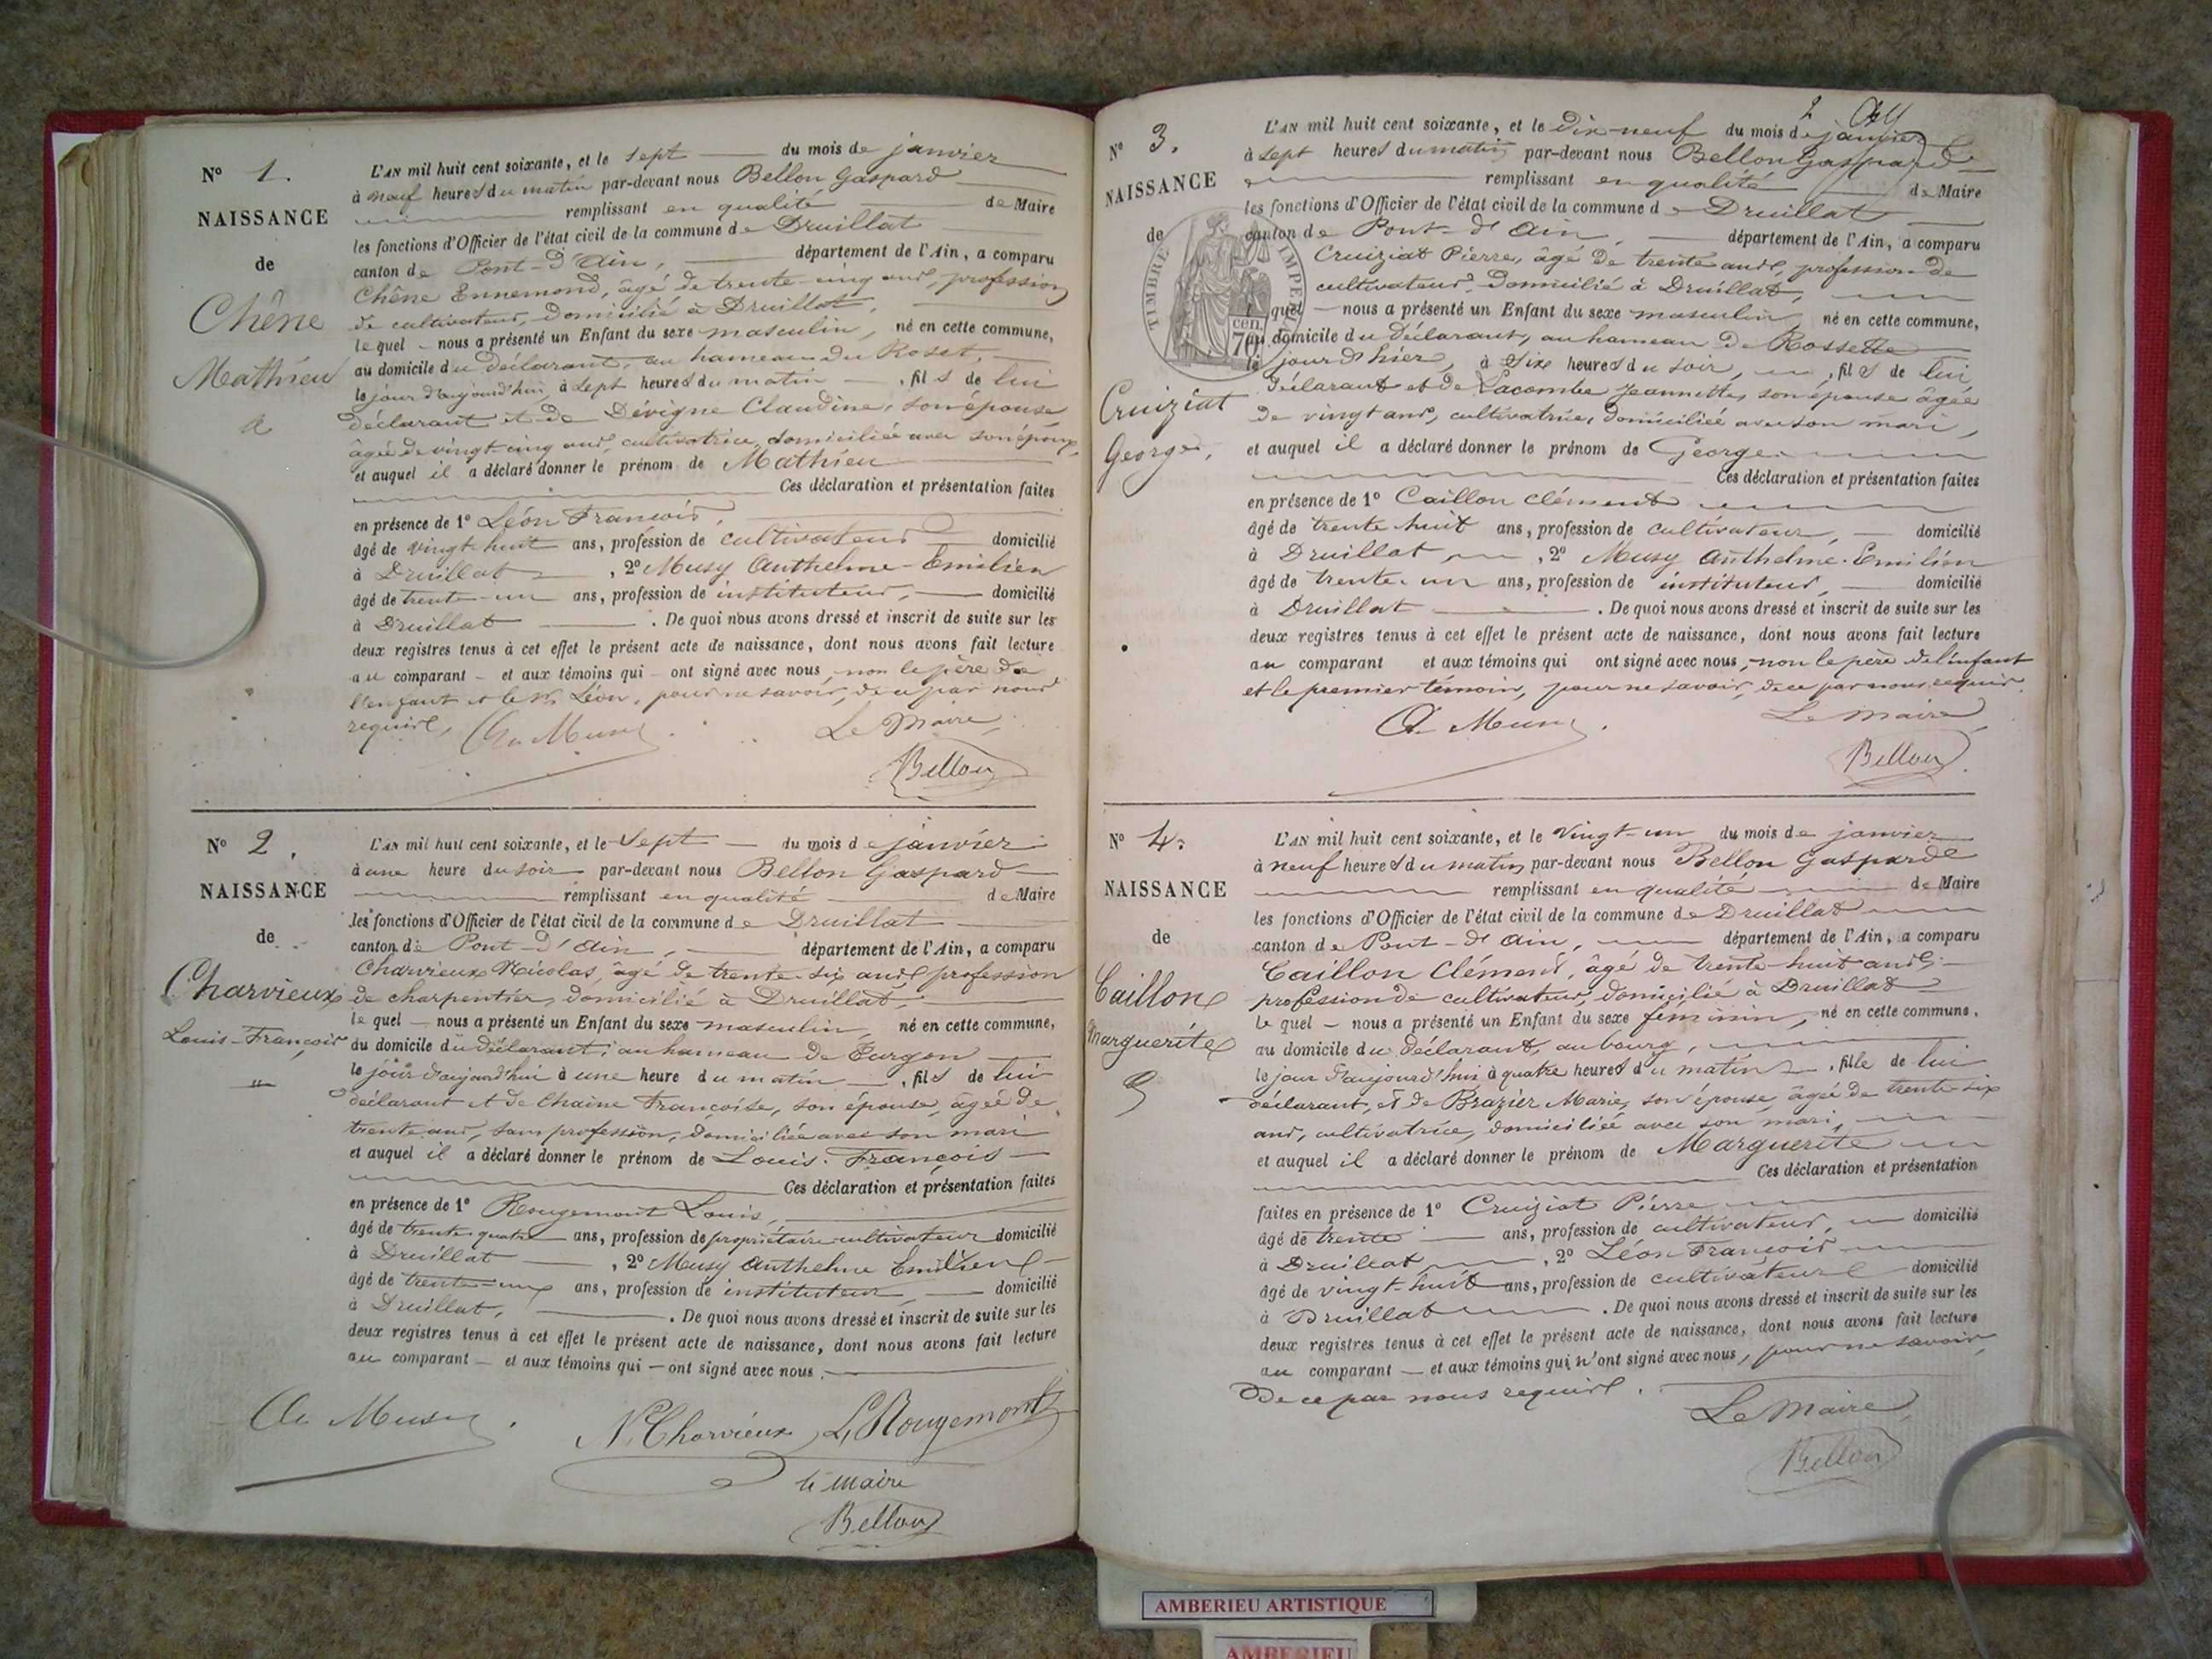 N° 1.
NAISSANCE
de
Chêne
Mathieu
L'AN mil huit cent soixante, et le sept du mois de janvier
à neuf heures du matin par-devant nous Bellon Gaspard
remplissant en qualité de Maire
les fonctions d'Officier de l'état civil de la commune de Druillat
canton de Pont-d'Ain, département de l'Ain, a comparu
Chêne Ennemond, âgé de trente-cinq ans, profession
de cultivateur, domicilié à Druillat,
lequel nous a présenté un Enfant du sexe masculin, né en cette commune,
au domicile du déclarant, au hameau du Roset,
le jour d'aujourd'hui à sept heures du matin, fils de lui
déclarant et de Dévigne Claudine, son épouse
âgée de vingt-cinq ans, cultivatrice, domiciliée avec son époux,
et auquel il a déclaré donner le prénom de Mathieu
Ces déclaration et présentation faites
en présence de 1° Léon François,
âgé de vingt-huit ans, profession de cultivateur domicilié
à Druillat, 2° Musy Anthelme-Emilien
âgé de trente-un ans, profession de instituteur, domicilié
à Druillat. De quoi nous avons dressé et inscrit de suite sur les
deux registres tenus à cet effet le présent acte de naissance, dont nous avons fait lecture
au comparant et aux témoins qui ont signé avec nous, non le père de
l'enfant et le Léon, pour ne savoir, de ce par nous
requis,
Le Maire,
Bellon
N° 2.
NAISSANCE
de
Charvieux
Louis-François
L'AN mil huit cent soixante, et le sept du mois de janvier
à une heure du soir par-devant nous Bellon Gaspard
remplissant en qualité de Maire
les fonctions d'Officier de l'état civil de la commune de Druillat
canton de Pont-d'Ain, département de l'Ain, a comparu
Charvieux Nicolas, âgé de trente-six ans, profession
de charpentier, domicilié à Druillat,
lequel nous a présenté un Enfant du sexe masculin, né en cette commune,
au domicile du déclarant, au hameau de Turgon
le jour d'aujourd'hui à une heure du matin, fils de lui
déclarant et de Chaine Françoise, son épouse, âgée de
trente ans, sans profession, domiciliée avec son mari
et auquel il a déclaré donner le prénom de Louis-François
Ces déclaration et présentation faites
en présence de 1° Rougemont Louis,
âgé de trente-quatre ans, profession de propriétaire cultivateur domicilié
à Druillat, 2° Musy Anthelme Emilien
âgé de trente-un ans, profession de instituteur, domicilié
à Druillat,. De quoi nous avons dressé et inscrit de suite sur les
deux registres tenus à cet effet le présent acte de naissance, dont nous avons fait lecture
au comparant et aux témoins qui ont signé avec nous.
N. Charvieux L. Rougemont
le maire
Bellon
N° 3.
NAISSANCE
de
Cruiziat
George,
TIMBRE
70 cen.
L'AN mil huit cent soixante, et le dix-neuf du mois de janvier
à sept heures du matin par-devant nous Bellon Gaspard
remplissant en qualité de Maire
les fonctions d'Officier de l'état civil de la commune de Druillat
canton de Pont-d'Ain, département de l'Ain, a comparu
Cruiziat Pierre, âgé de trente ans, profession de
cultivateur, domicilié à Druillat,
lequel nous a présenté un Enfant du sexe masculin né en cette commune,
au domicile du déclarant, au hameau de Rossette
le jour d'hier, à six heures du soir, fils de lui,
déclarant et de Lacombe Jeannette, son épouse âgée
de vingt ans, cultivatrice, domiciliée avec son mari,
et auquel il a déclaré donner le prénom de George
Ces déclaration et présentation faites
en présence de 1° Caillon Clément
âgé de trente huit ans, profession de cultivateur, domicilié
à Druillat, 2° Musy Anthelme-Emilien
âgé de trente-un ans, profession de instituteur, domicilié
à Druillat. De quoi nous avons dressé et inscrit de suite sur les
deux registres tenus à cet effet le présent acte de naissance, dont nous avons fait lecture
au comparant et aux témoins qui ont signé avec nous, non le père de l'enfant
et le premier témoin, pour ne savoir, de ce par nous requis.
Le Maire
Bellon
N° 4.
NAISSANCE
de
Caillon
Marguerite
L'AN mil huit cent soixante, et le vingt-un du mois de janvier
à neuf heures du matin par-devant nous Bellon Gaspard
remplissant en qualité de Maire
les fonctions d'Officier de l'état civil de la commune de Druillat
canton de Pont-d'Ain, département de l'Ain, a comparu
Caillon Clément, âgé de trente-huit ans,
profession de cultivateur, domicilié à Druillat
lequel nous a présenté un Enfant du sexe féminin, né en cette commune,
au domicile du déclarant, au bourg,
le jour d'aujourd'hui à quatre heures du matin, fille de lui
déclarant, et de Brazier Marie, son épouse, âgée de trente-six
ans, cultivatrice, domiciliée avec son mari,
et auquel il a déclaré donner le prénom de Marguerite
Ces déclaration et présentation
faites en présence de 1° Cruiziat Pierre
âgé de trente ans, profession de cultivateur, domicilié
à Druillat, 2° Léon François
âgé de vingt-huit ans, profession de cultivateur domicilié
à Druillat. De quoi nous avons dressé et inscrit de suite sur les
deux registres tenus à cet effet le présent acte de naissance, dont nous avons fait lecture
au comparant et aux témoins qui n'ont signé avec nous, pour ne savoir,
de ce par nous requis.
Le Maire,
Bellon
AMBERIEU ARTISTIQUE
AMBERIEU